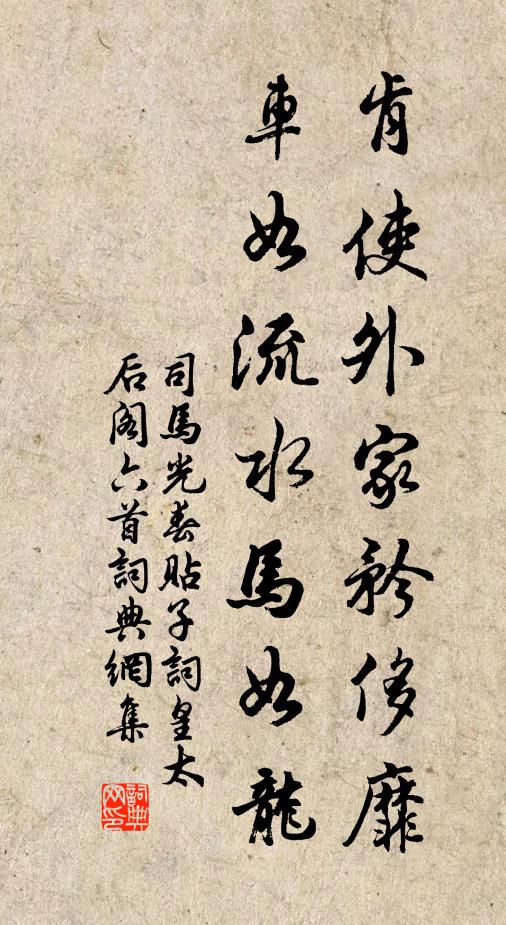 肯使外家矜侈靡
車如流水馬如龍
司馬光春貼子詞皇太
后閣六首詞典網集
詞典網印